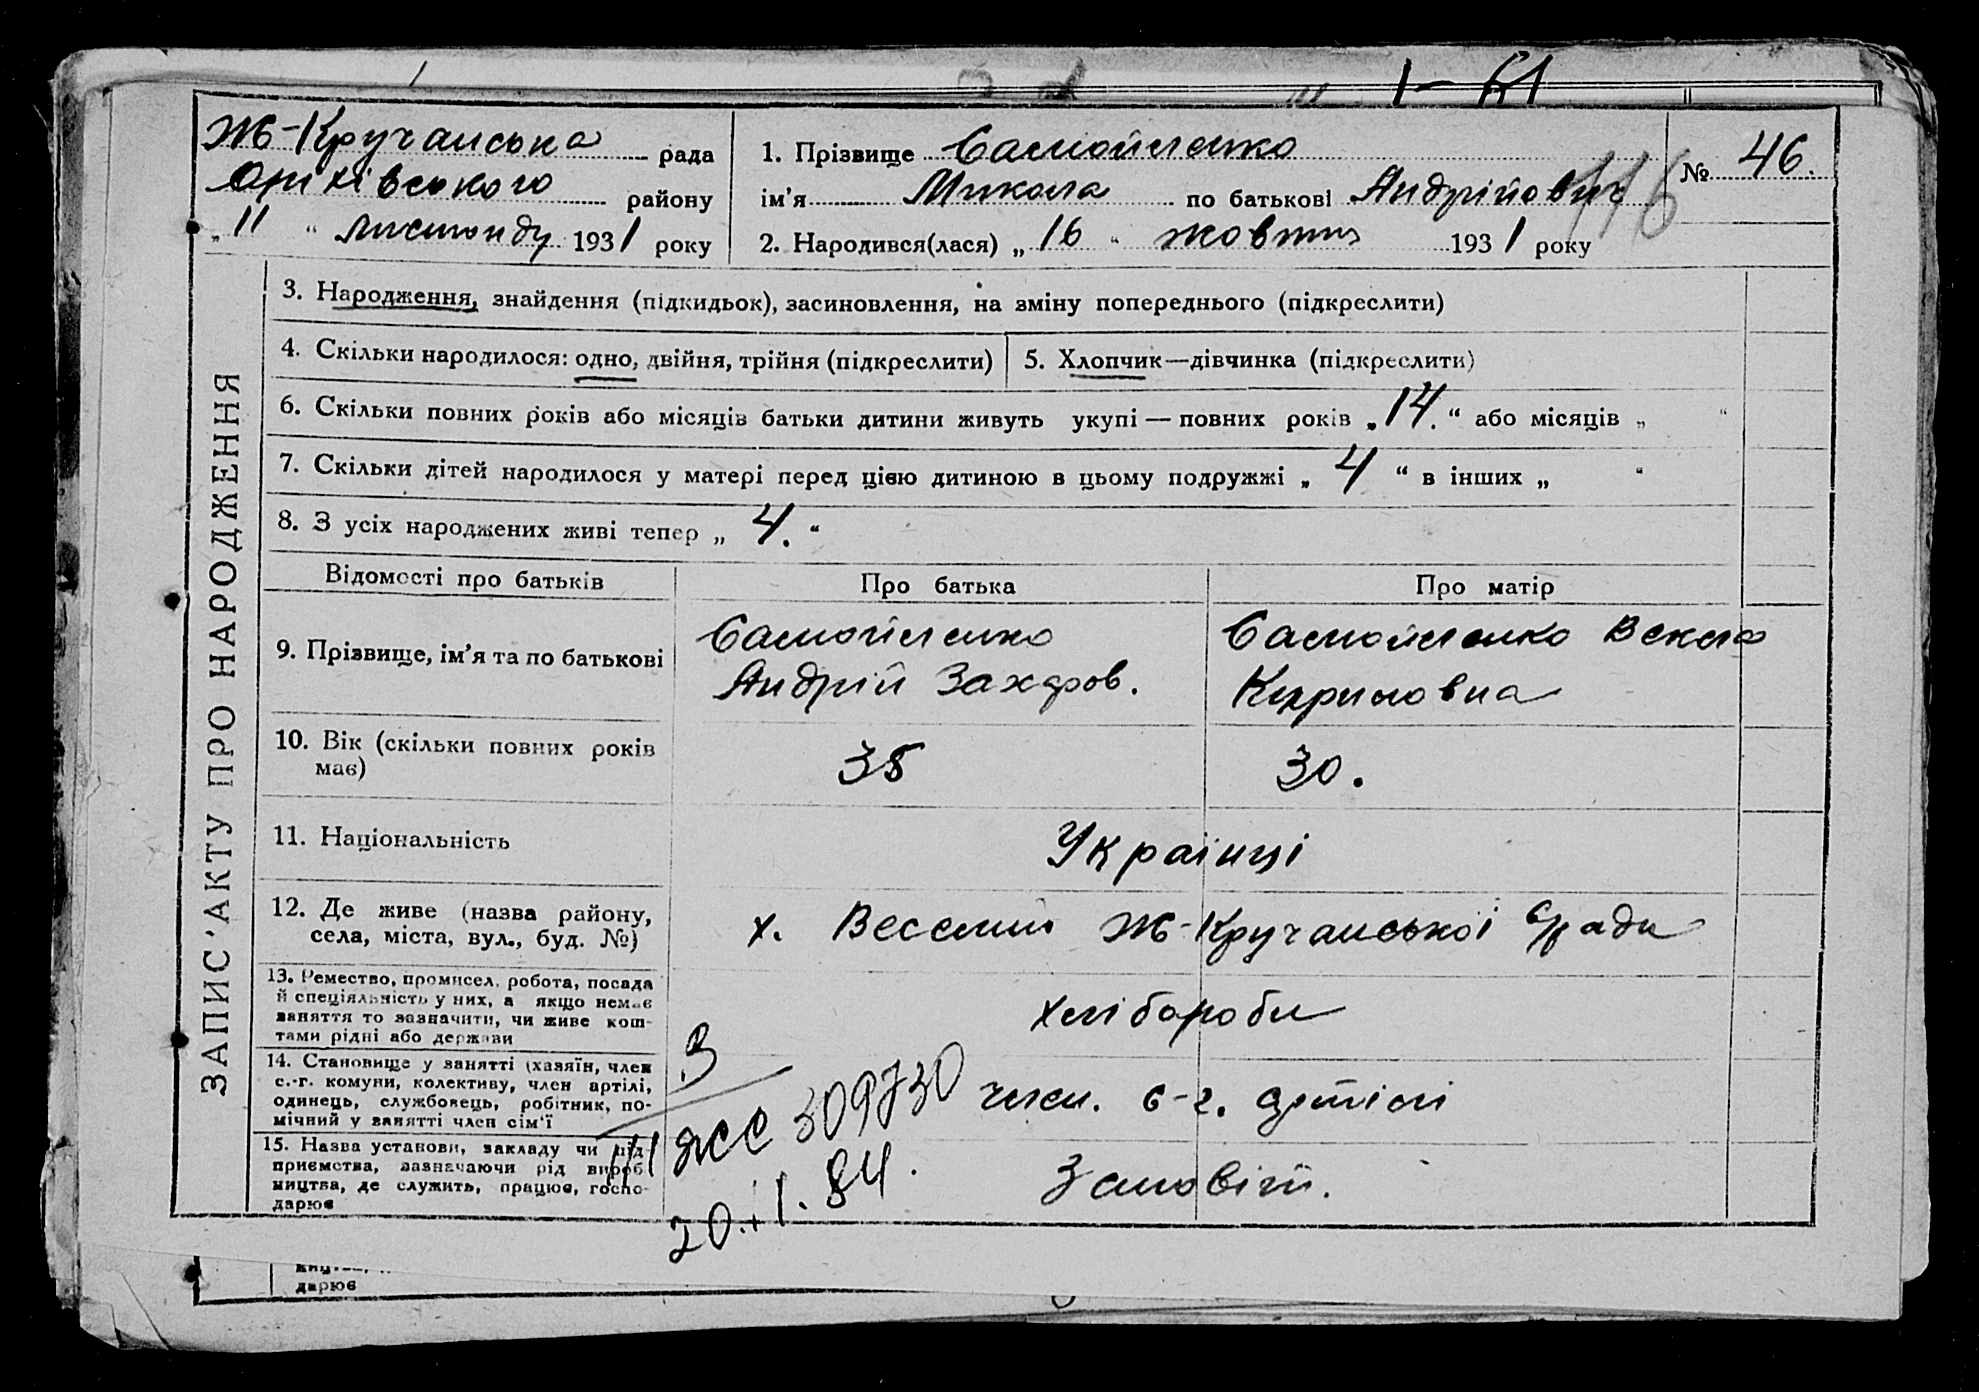 1 - 61
Ж-Кручанська рада
Оріхівського району
„ 11 “ листопаду 1931 року
1. Прізвище Самойленко
ім’я Микола по батькові Андрійович
2. Народився(лася) „ 16 “ жовтня 1931 року
№ 46.
116
ЗАПИС АКТУ ПРО НАРОДЖЕННЯ
3. Народження, знайдення (підкидьок), засиновлення, на зміну попереднього (підкреслити)
4. Скільки народилося: одно, двійня, трійня (підкреслити)
5. Хлопчик—дівчинка (підкреслити)
6. Скільки повних років або місяців батьки дитини живуть укупі — повних років „ 14. “ або місяців „ “
7. Скільки дітей народилося у матері перед цією дитиною в цьому подружжі „ 4 “ в інших „ “
8. З усіх народжених живі тепер „ 4. “
Відомості про батьків
Про батька
Про матір
9. Прізвище, ім’я та по батькові
Самойленко
Андрій Захаров.
Самойленко Векла
Кириловна
10. Вік (скільки повних років
має)
35
30.
11. Національність
Українці
12. Де живе (назва району,
села, міста, вул., буд. №)
х. Веселий Ж-Кручанської с/ради
13. Ремество, промисел, робота, посада
й спеціяльність у них, а якщо немає
заняття то зазначити, чи живе кош-
тами рідні або держави
хлібороби
14. Становище у занятті (хазяїн, член
с.-г. комуни, колективу, член артілі,
одинець, службовець, робітник, по-
мічний у занятті член сім’ї
член. с-г. артілі
15. Назва установи, закладу чи під-
приємства, зазначаючи рід вироб-
ництва, де служить, працює, госпо-
дарює
Заповіт.
309730
20.11.84.
дарює